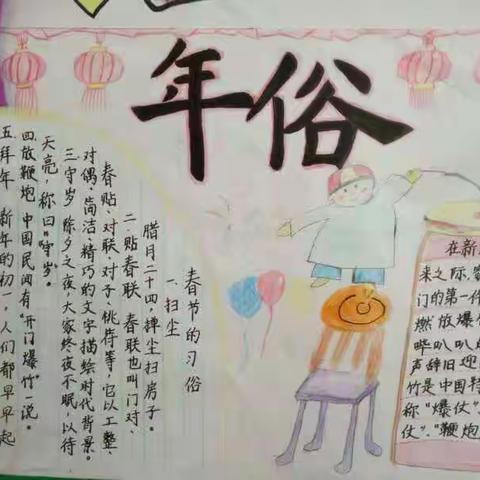 年俗
春节的习俗
一、扫尘
腊月二十四,掸尘扫房子。
二、贴春联 春联也叫门对、
春贴、对联、对子、桃符等,它以工整、
对偶、简洁、精巧的文字描绘时代背景。
三、守岁 除夕之夜,大家终夜不眠,以待
天亮,称曰"守岁。
四、放鞭炮 中国民间有"开门爆竹"一说。
五、拜年 新年的初一,人们都早早起
在新
来之际,
门的第一
燃放爆
哗叭叭
声辞旧迎
竹是中国特
称"爆仗"
仗"、"鞭炮